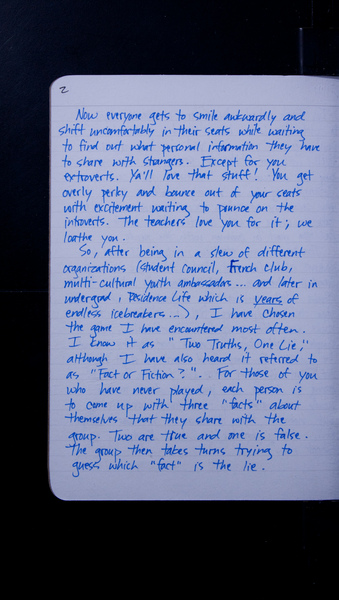 2
Now everyone gets to smile awkwardly and
shift uncomfortably in their seats while waiting
to find out what personal information they have
to share with strangers. Except for you
extroverts. Ya'll love that stuff! You get
overly perky and bounce out of your seats
with excitement waiting to pounce on the
introverts. The teachers love you for it; we
loathe you.
So, after being in a slew of different
organizations (student council, French club,
multi-cultural youth ambassadors... and later in
undergrad, Residence Life which is years of
endless icebreakers...), I have chosen
the game I have encountered most often.
I know it as "Two Truths, One Lie,"
although I have also heard it referred to
as "Fact or Fiction?". For those of you
who have never played, each person is
to come up with three "facts" about
themselves that they share with the
group. Two are true and one is false.
The group then takes turns trying to
guess which "fact" is the lie.